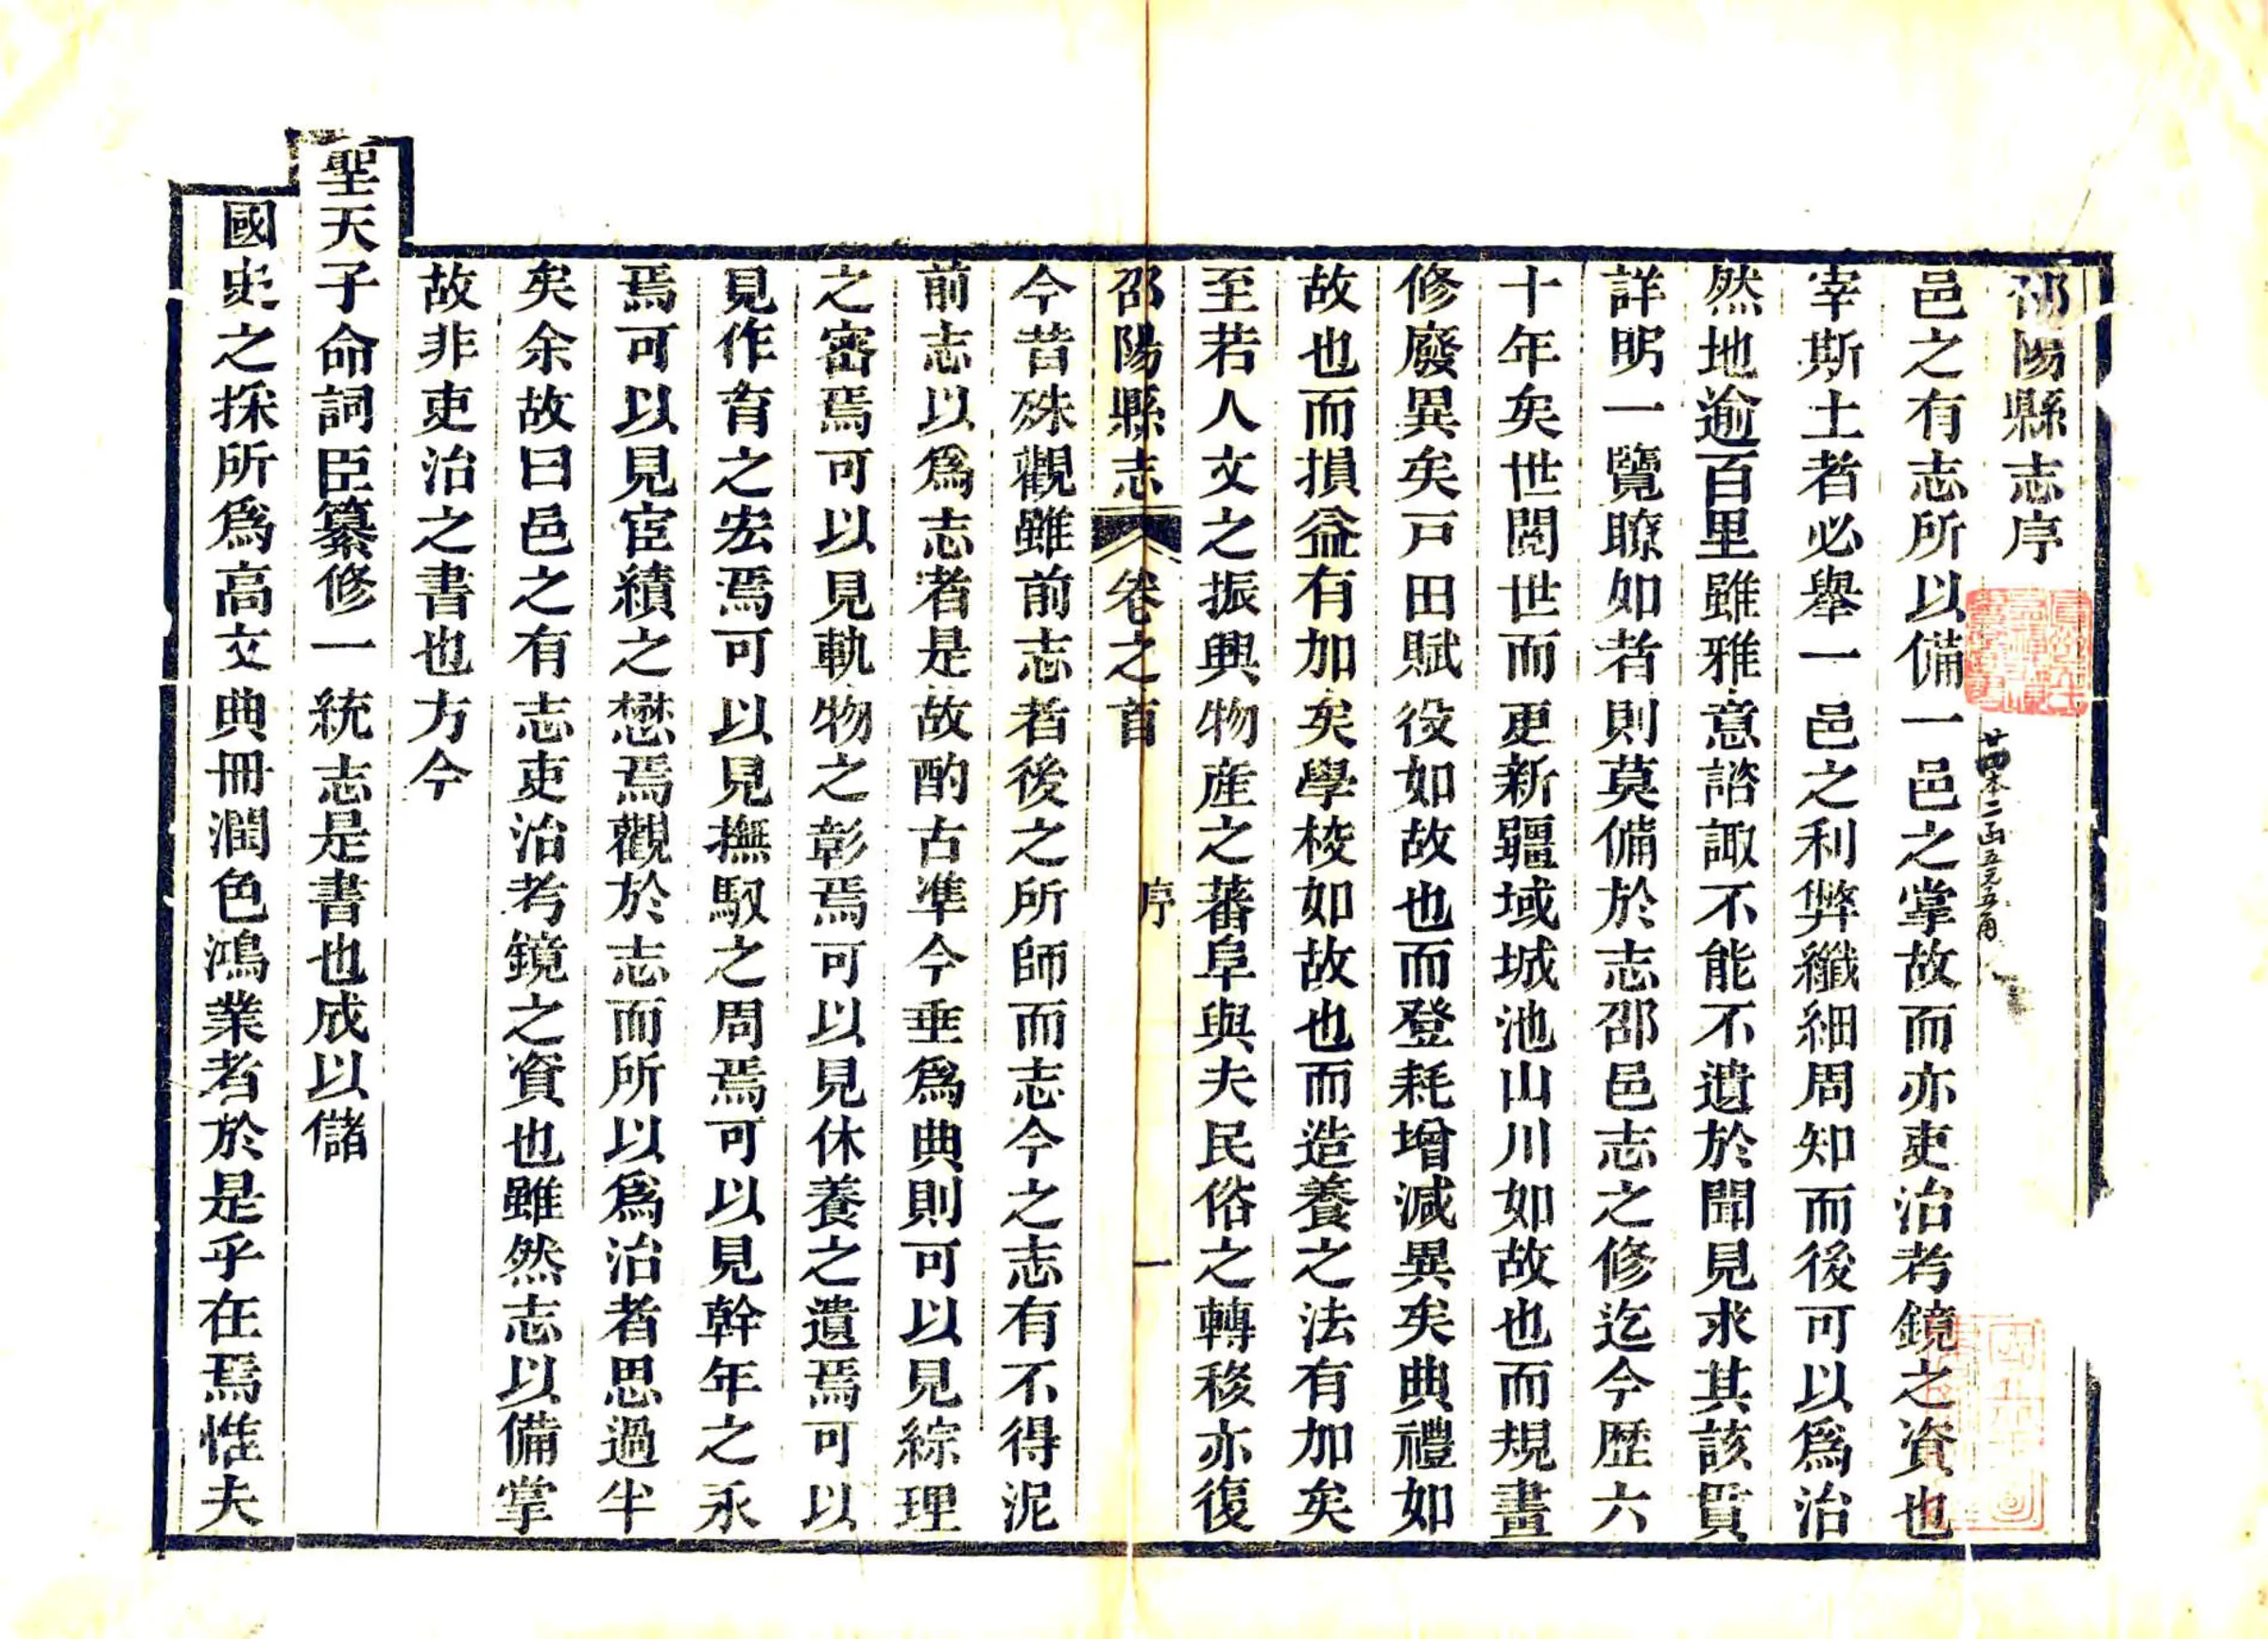 邵陽縣志序
邑之有志所以備一邑之掌故而亦吏治考鏡之資也
宰斯土者必舉一邑之利弊纖細周知而後可以爲治
然地逾百里雖雅意諮諏不能不遺於聞見求其該貫
詳明一覽瞭如者則莫備於志邵邑志之修迄今歴六
十年矣世閱世而更新疆域城池山川如故也而規畫
修廢異矣戸田賦役如故也而登耗增減異矣典禮如
故也而損益有加矣學校如故也而造養之法有加矣
至若人文之振興物産之蕃阜與夫民俗之轉移亦復
邵陽縣志 卷之首 序 一
今昔殊觀雖前志者後之所師而志今之志有不得泥
前志以爲志者是故酌古凖今垂爲典則可以見綜理
之密焉可以見軌物之彰焉可以見休養之遺焉可以
見作育之宏焉可以見撫馭之周焉可以見幹年之永
焉可以見宦績之懋焉觀於志而所以爲治者思過半
矣余故曰邑之有志吏治考鏡之資也雖然志以備掌
故非吏治之書也方今
聖天子命詞臣纂修一統志是書也成以儲
國史之採所爲高文典冊潤色鴻業者於是乎在焉惟夫